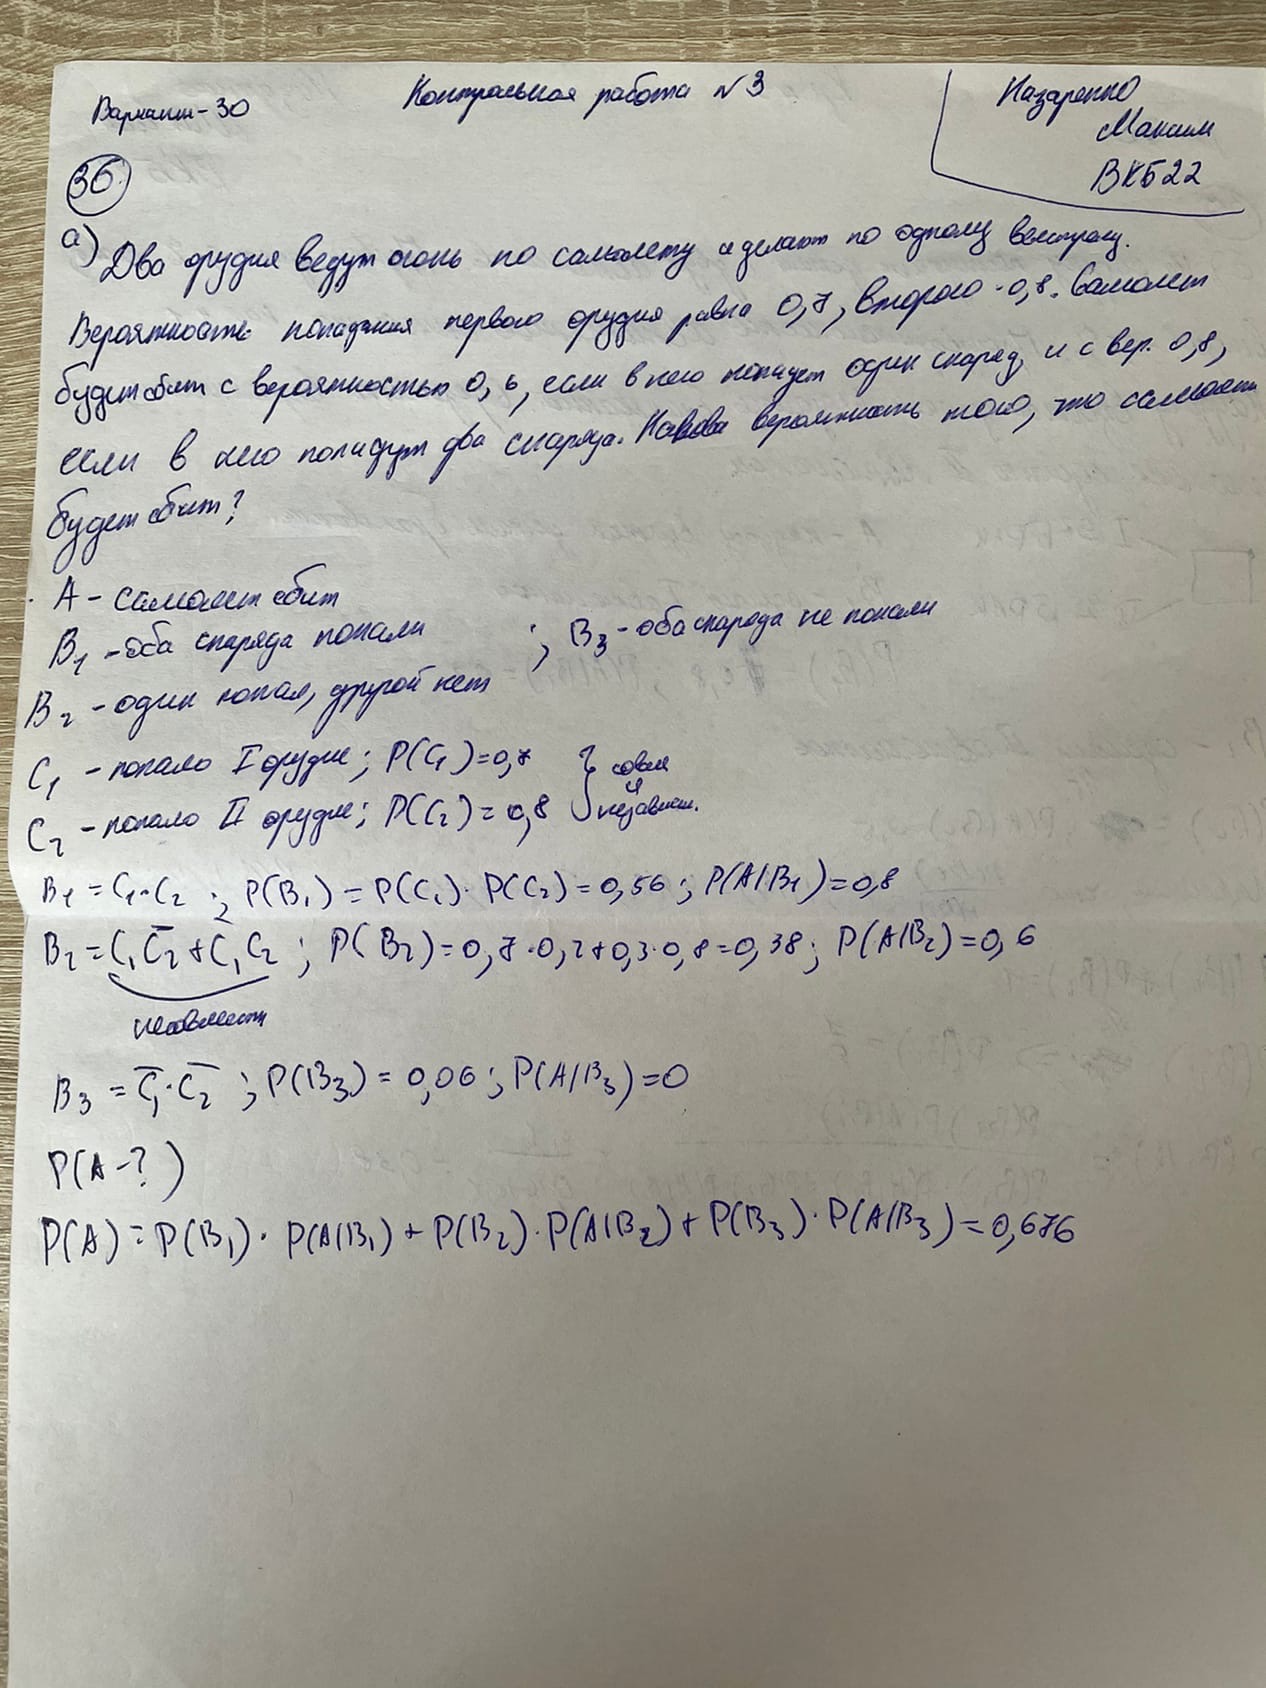 Вариант-30
Контрольная работа №3
Назаренко
Максим
ВКБ22
36.
а) Два орудия ведут огонь по самолету и делают по одному выстрелу.
Вероятность попадания первого орудия равна 0,7, второго - 0,8. Самолет
будет сбит с вероятностью 0,6, если в него попадет один снаряд, и с вер. 0,8,
если в него попадут два снаряда. Какова вероятность того, что самолет
будет сбит?
А - самолет сбит
B₁ - оба снаряда попали ; B₃ - оба снаряда не попали
B₂ - один попал, другой нет
C₁ - попало I орудие; P(C₁)=0,7 } совм
и
C₂ - попало II орудие; P(C₂)=0,8 независ.
B₁ = C₁·C₂ ; P(B₁) = P(C₁)·P(C₂) = 0,56 ; P(A/B₁) = 0,8
B₂ = C₁C̅₂ + C̅₁C₂ ; P(B₂) = 0,7·0,2+0,3·0,8=0,38; P(A/B₂)=0,6
несовмест
B₃ = C̅₁·C̅₂ ; P(B₃) = 0,06 ; P(A/B₃)=0
P(A-?)
P(A) = P(B₁)·P(A/B₁) + P(B₂)·P(A/B₂) + P(B₃)·P(A/B₃) = 0,676